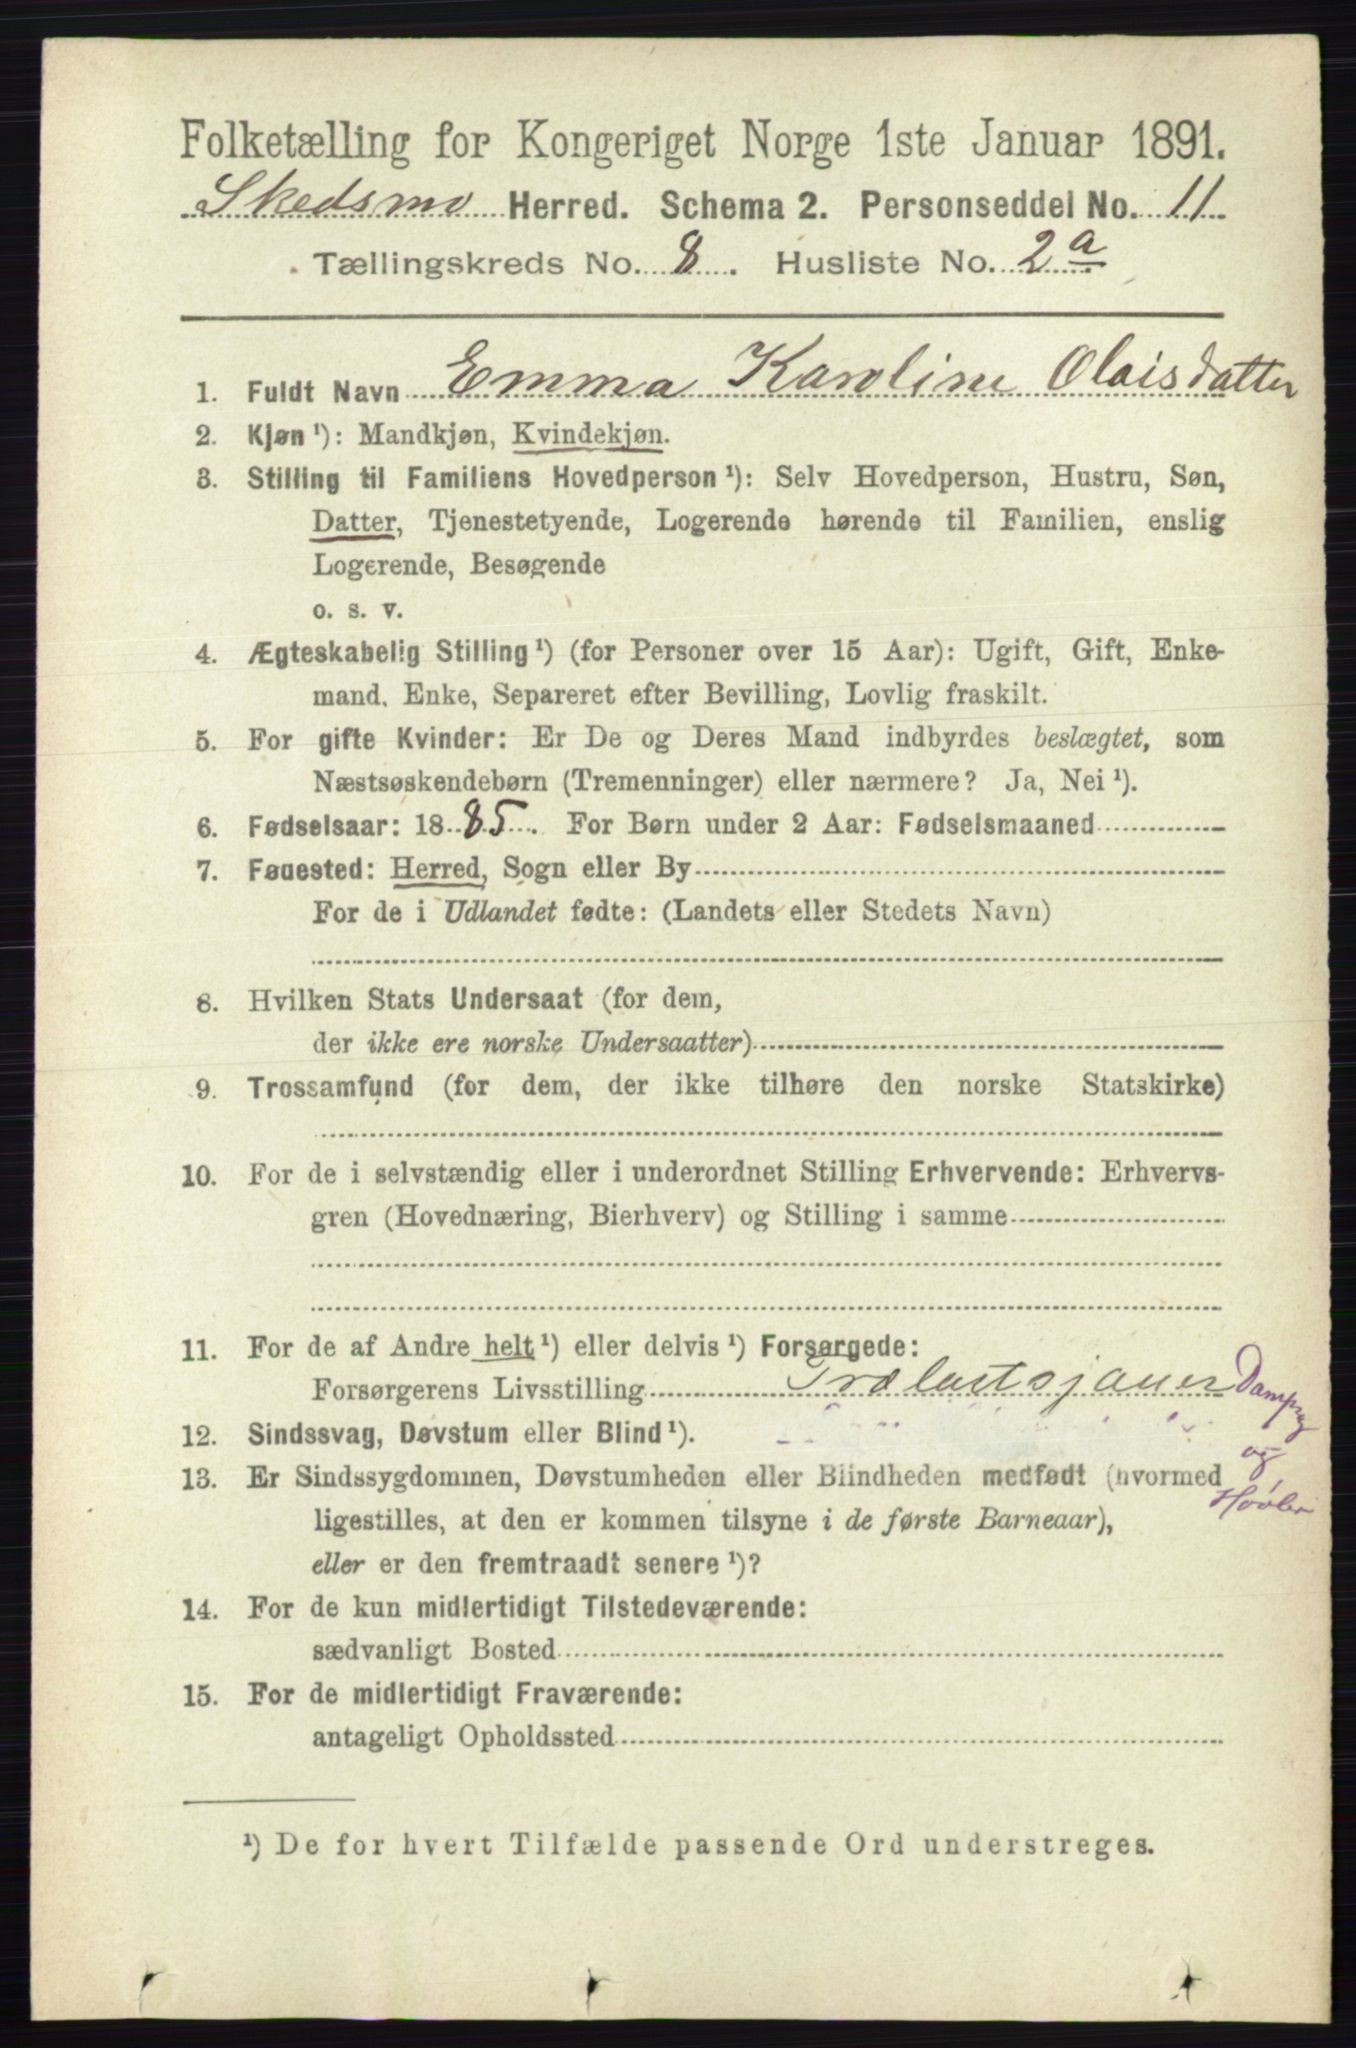 Folketælling for Kongeriget Norge 1ste Januar 1891.
Skedsmo Herred. Schema 2. Personseddel No. 11
Tællingskreds No. 8. Husliste No. 2a
1. Fuldt Navn Emma Karoline Olaisdatter
2. Kjøn ¹): Mandkjøn, Kvindekjøn.
3. Stilling til Familiens Hovedperson ¹): Selv Hovedperson, Hustru, Søn,
Datter, Tjenestetyende, Logerende hørende til Familien, enslig
Logerende, Besøgende
o. s. v.
4. Ægteskabelig Stilling ¹) (for Personer over 15 Aar): Ugift, Gift, Enke-
mand, Enke, Separeret efter Bevilling, Lovlig fraskilt.
5. For gifte Kvinder: Er De og Deres Mand indbyrdes beslægtet, som
Næstsøskendebørn (Tremenninger) eller nærmere? Ja, Nei ¹).
6. Fødselsaar: 1885. For Børn under 2 Aar: Fødselsmaaned
7. Fødested: Herred, Sogn eller By
For de i Udlandet fødte: (Landets eller Stedets Navn)
8. Hvilken Stats Undersaat (for dem,
der ikke ere norske Undersaatter)
9. Trossamfund (for dem, der ikke tilhøre den norske Statskirke)
10. For de i selvstændig eller i underordnet Stilling Erhvervende: Erhvervs-
gren (Hovednæring, Bierhverv) og Stilling i samme
11. For de af Andre helt ¹) eller delvis ¹) Forsørgede:
Forsørgerens Livsstilling Trælastsjauer Dampsag
og
Høvleri
12. Sindssvag, Døvstum eller Blind ¹).
13. Er Sindssygdommen, Døvstumheden eller Blindheden medfødt (hvormed
ligestilles, at den er kommen tilsyne i de første Barneaar),
eller er den fremtraadt senere ¹)?
14. For de kun midlertidigt Tilstedeværende:
sædvanligt Bosted
15. For de midlertidigt Fraværende:
antageligt Opholdssted
¹) De for hvert Tilfælde passende Ord understreges.